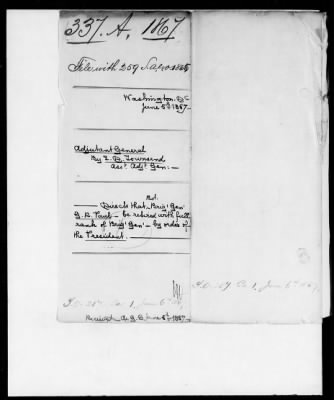 337. A, 1867
File with 259
Washington. D.C.
June 5th 1867.
Adjutant General
By E. D. Townsend
Asst. Adjt. Gen: —
Directs that Brigt Genl
G. R. Paul — be retired with full
rank of Brigt Genl — by order of
the President.
June 6th
June 6th 1867.
Received A. G. O. June 6th 1867.